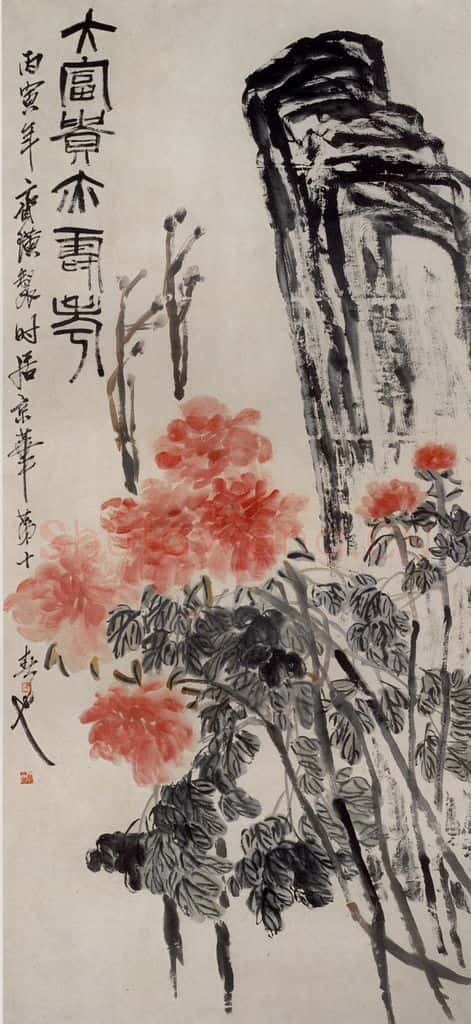 大富貴亦壽考
丙寅年齊璜製时居京華第十春也